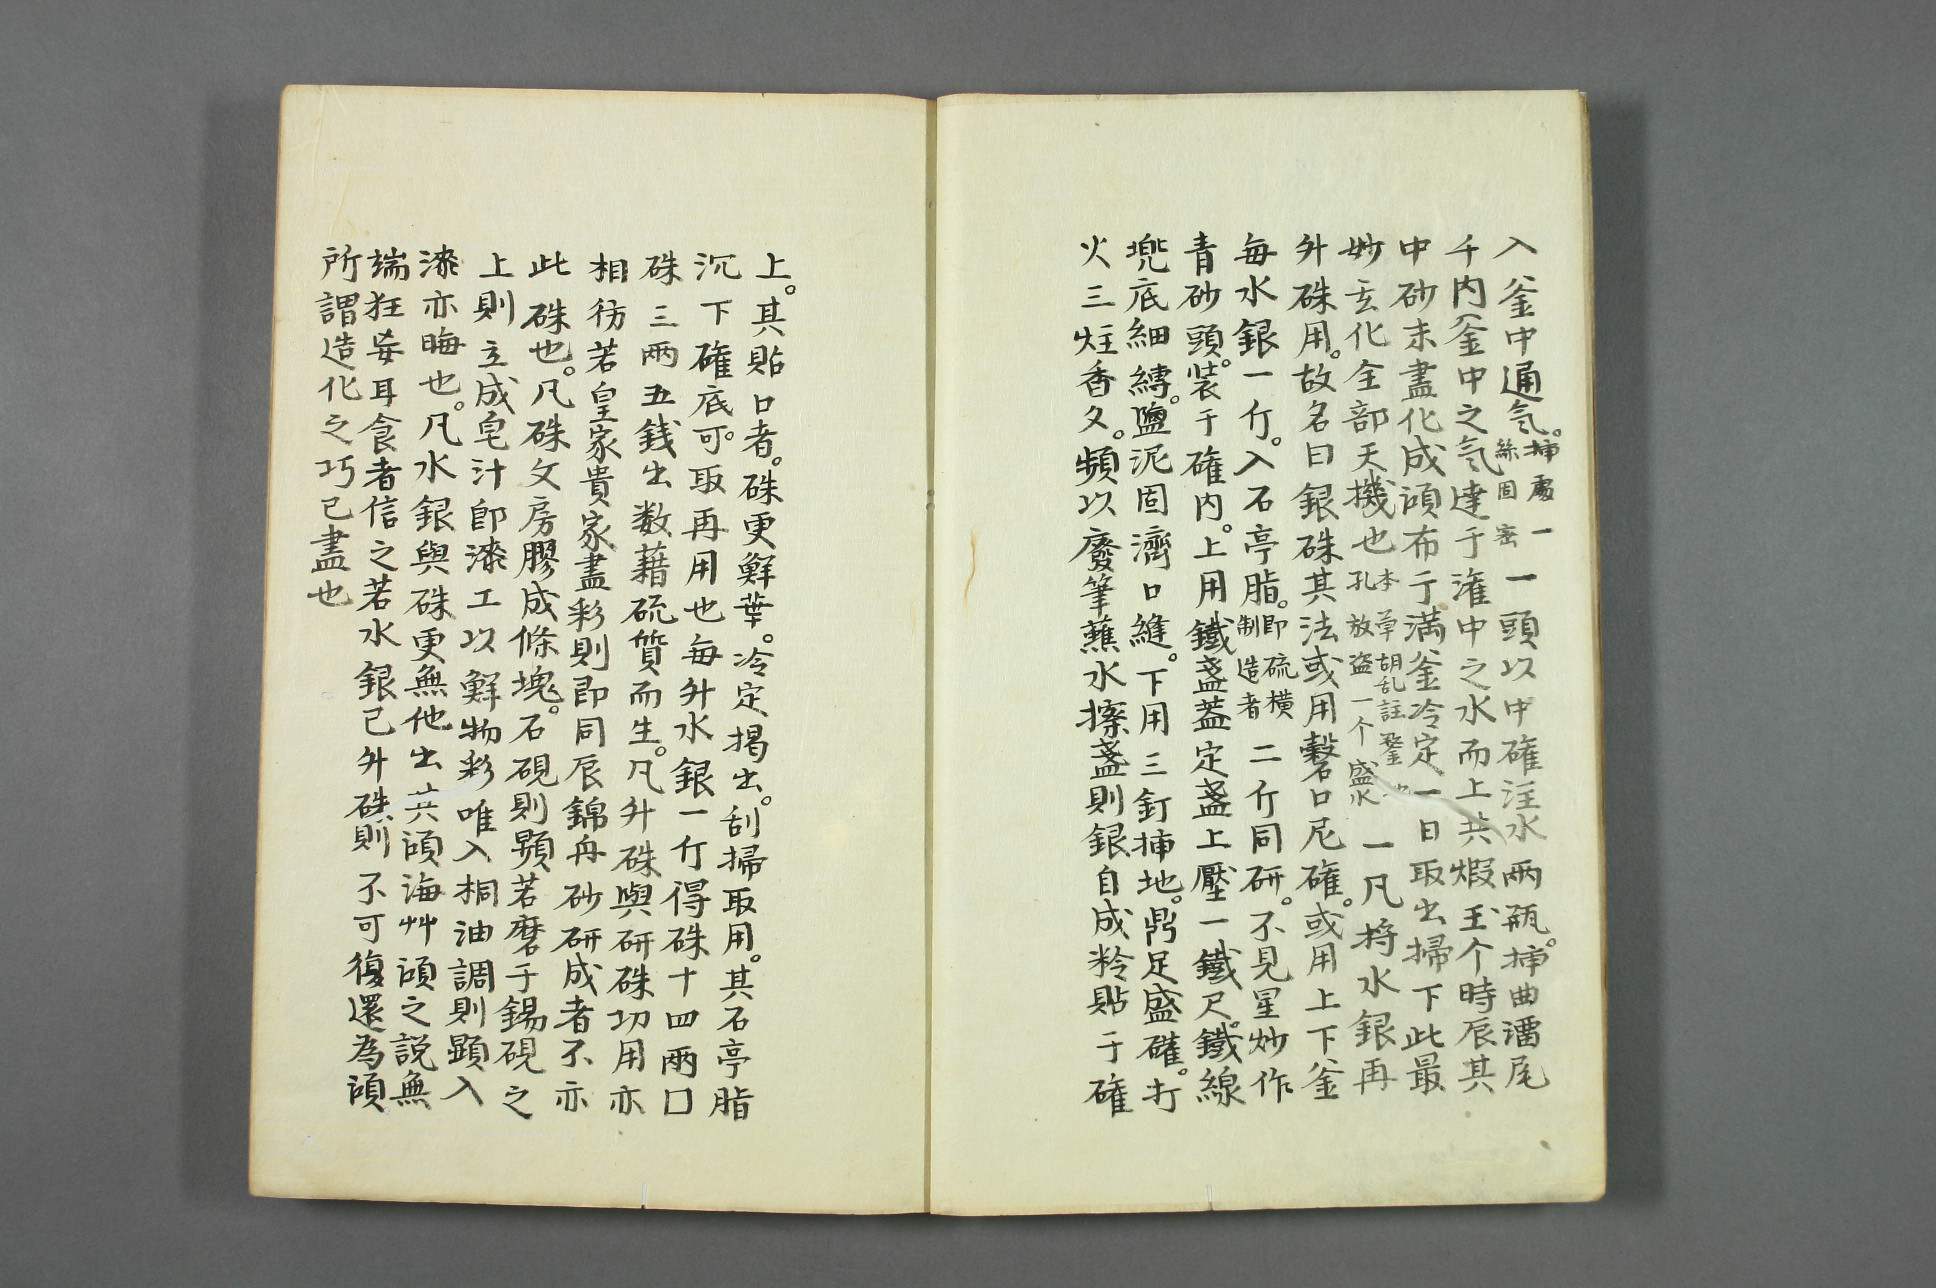 入釜中通氣。挿處一絲固密一頭以中確注水兩瓶。挿曲潘尾
千内釜中之气達于潅中之水而上共煆五个時辰其
中砂末盡化成澒布于満釜冷定一日取出掃下此最
妙玄化全部天機也本草胡乱註鑿地孔放盗一个盛水一凡将水銀再
升硃用。故名曰銀硃其法或用磬口尼確。或用上下釜
每水銀一斤。入石亭脂。即硫横制造者二斤同研。不見星炒作
青砂頭。装于確内。上用鐵盞盖定盞上壓一鐵尺。鐵線
兠底細縛。鹽泥固濟口縫。下用三釘挿地。鼎足盛確。打
火三炷香久。頻以廢筆蘸水擦盞則銀自成粉貼于確
上。其貼口者。硃更鮮華。冷定掲出。刮掃取用。其石亭脂
沉下確底。可取再用也每升水銀一斤得硃十四兩口
硃三兩五銭出数藉硫質而生。凡升硃與研硃功用亦
相彷若皇家貴家盡彩則即同辰錦丹砂研成者不亦
此硃也。凡硃文房膠成條塊。石硯則顕若磨于錫硯之
上則立成皂汁即漆工以鮮物彩唯入桐油調則顕入
漆亦晦也。凡水銀與硃更無他出其澒海艸澒之説無
端狂妄耳食者信之若水銀已升硃則不可復還為澒
所謂造化之巧已盡也